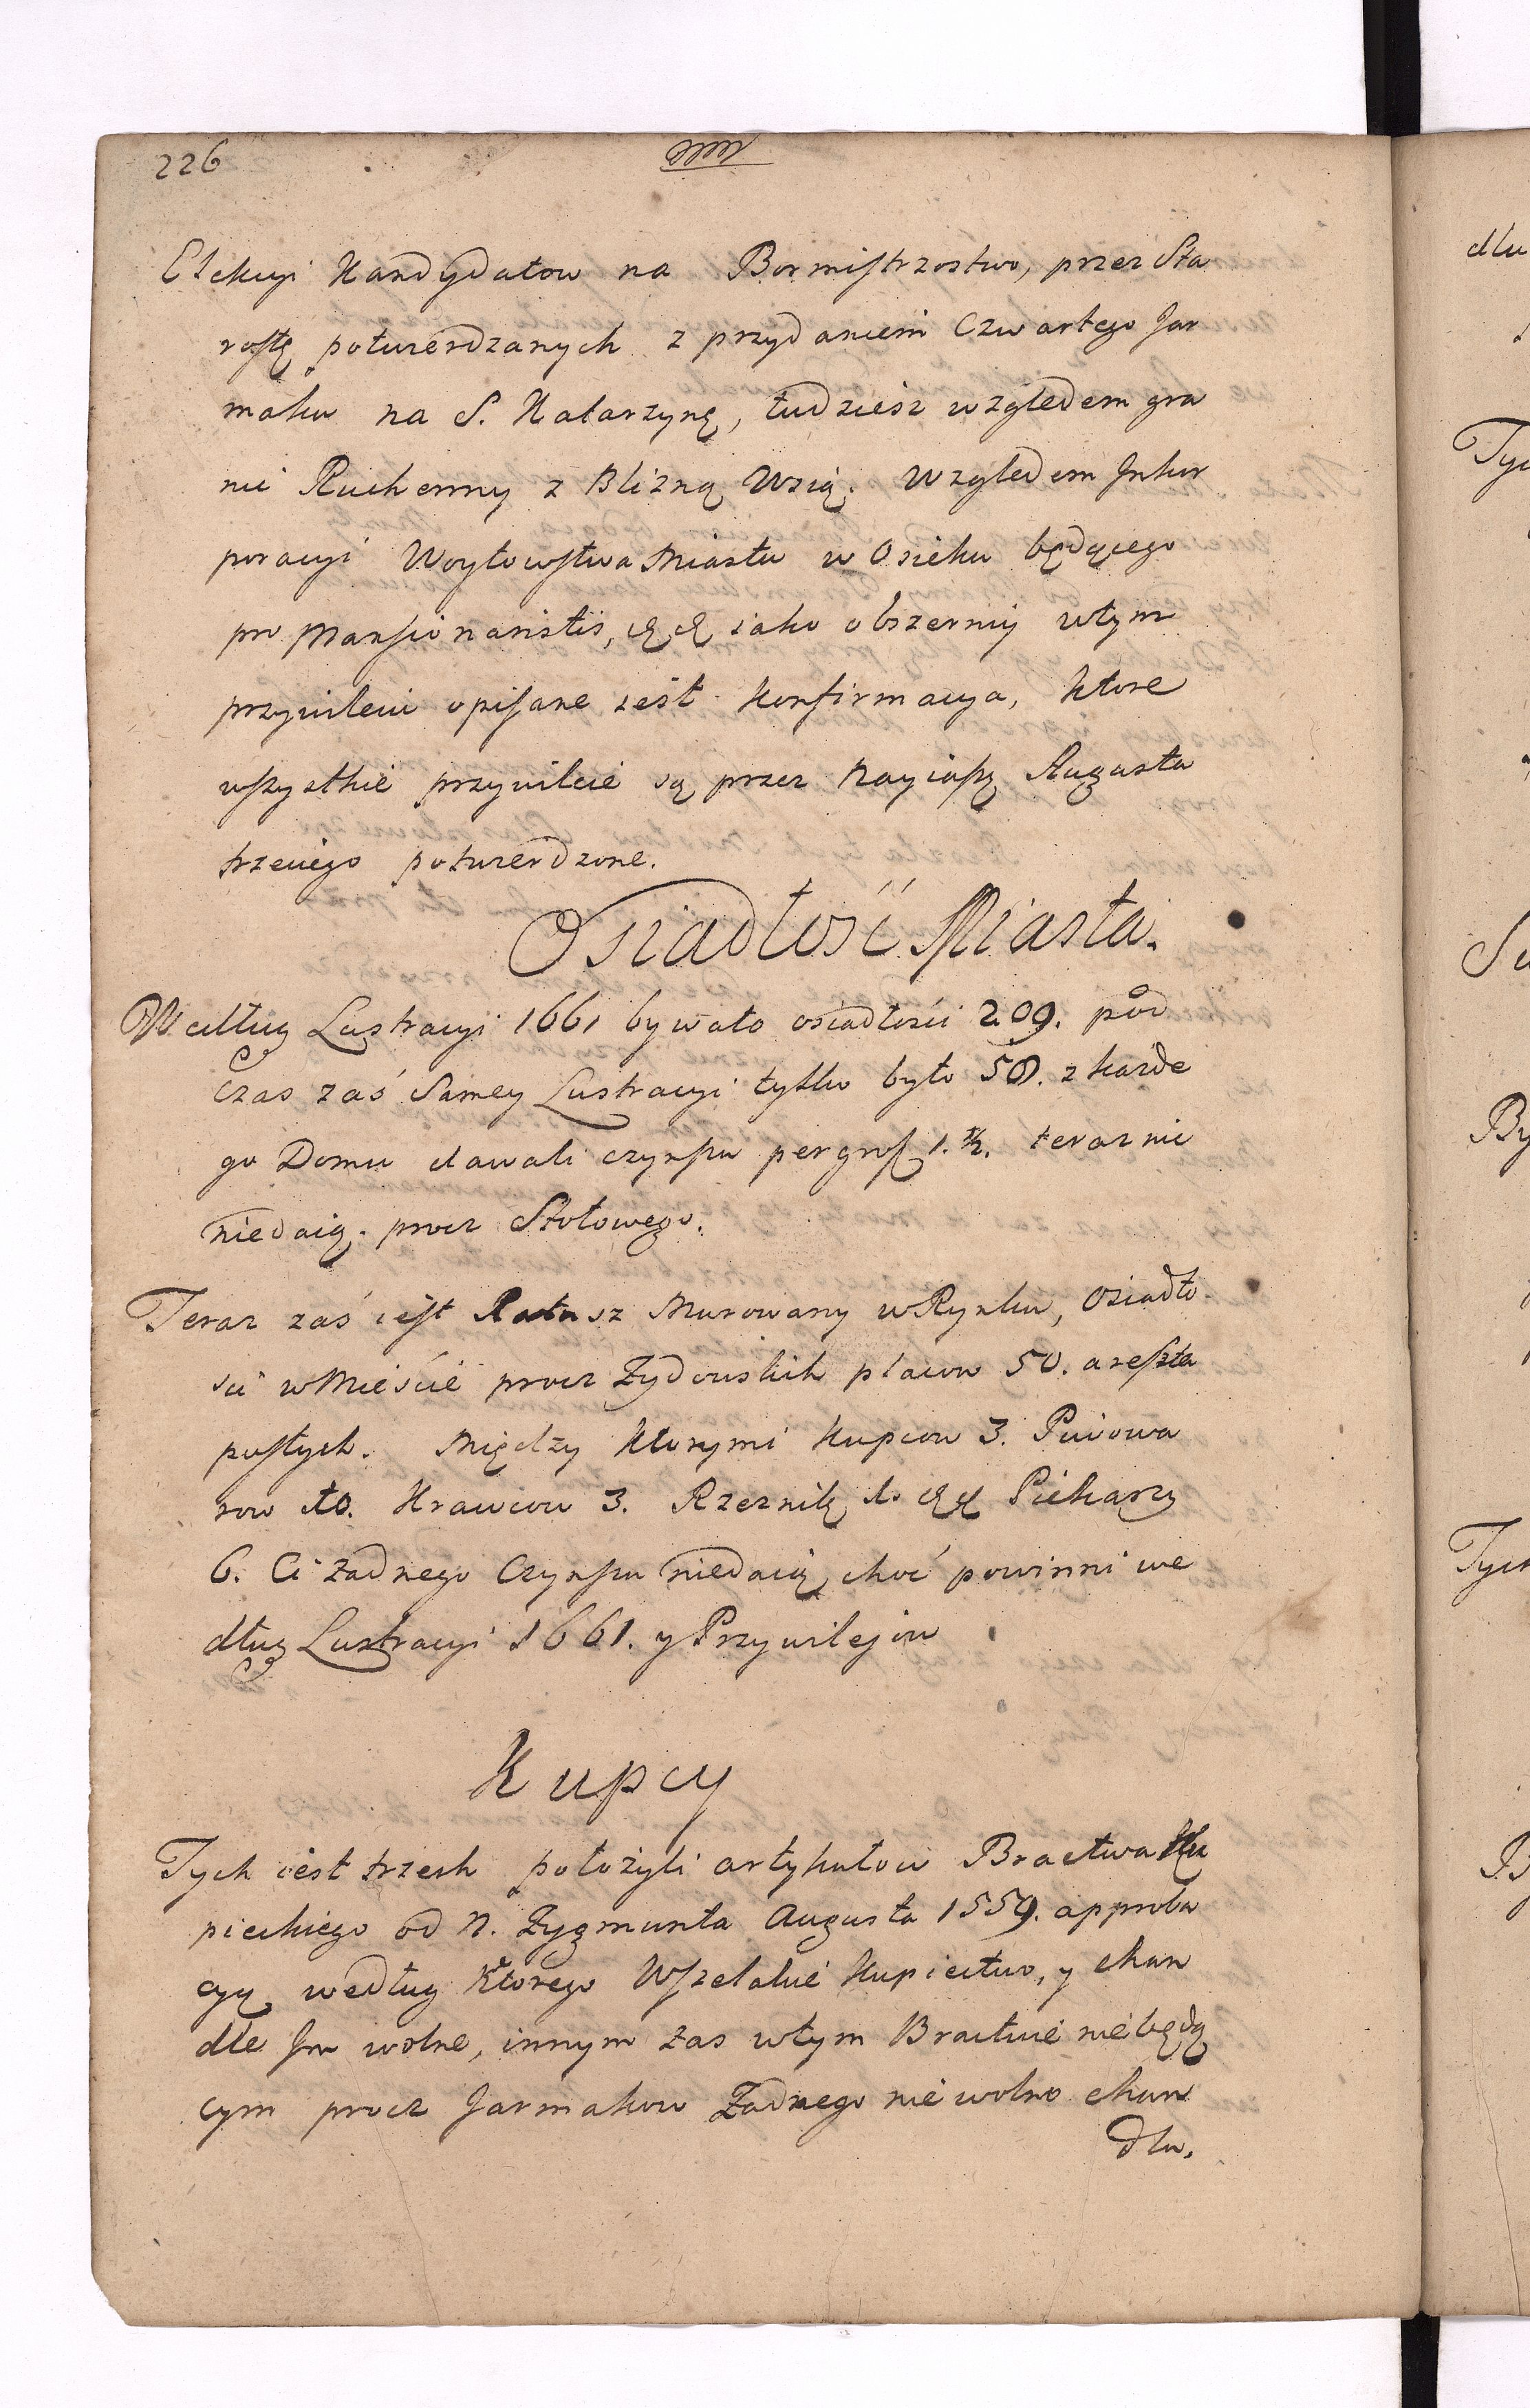 226
Elekcyi Kandydatow na Bormistrzostwo, przez Sta
rostę potwierdzanych z przydaniem Czwartego Jar
maku na S. Katarzynę, tudziesz względem gra
nic Ruchenny z Blizną Wsią. Względem Inkor
poracyi Woytowstwa Miastu w Osieku będącego
pro Mansionaristis, &c &c iako obszerniy w tym
przywileiu opisane iest konfirmacya, ktore
wszystkie przywileie są przez Nayiaszę Augusta
trzeciego potwierdzone.
Osiadłość Miasta.
Według Lustracyi 1661 bywało osiadłości 209. pod
czas zaś Samey Lustracyi tylko było 58. z każde
go Domu dawali czynszu per gros 1. ½. teraz nic
niedaią. procz Stołowego.
Teraz zaś iest Ratusz Murowany w Rynku, Osiadło
sci w Mieście procz Żydowskich placow 50. a reszta
pustych. Między ktorymi kupcow 3. Piwowa
row 10. Krawcow 3. Rzeznik 1. &c Piekarzy
6. Ci żadnego Czynszu niedaią, choć powinni we
dług Lustracyi 1661. y Przywilejow
Kupcy
Tych iest trzech położyli artykułow Bractwa Ku
pieckiego od N. Zygmunta Augusta 1559. approba
cyą według ktorego Wszelakie kupiectwo, y chan
dle Im wolne, innym zas w tym Bractwie niebędą
cym procz Jarmakow Żadnego nie wolno chan
dlu.